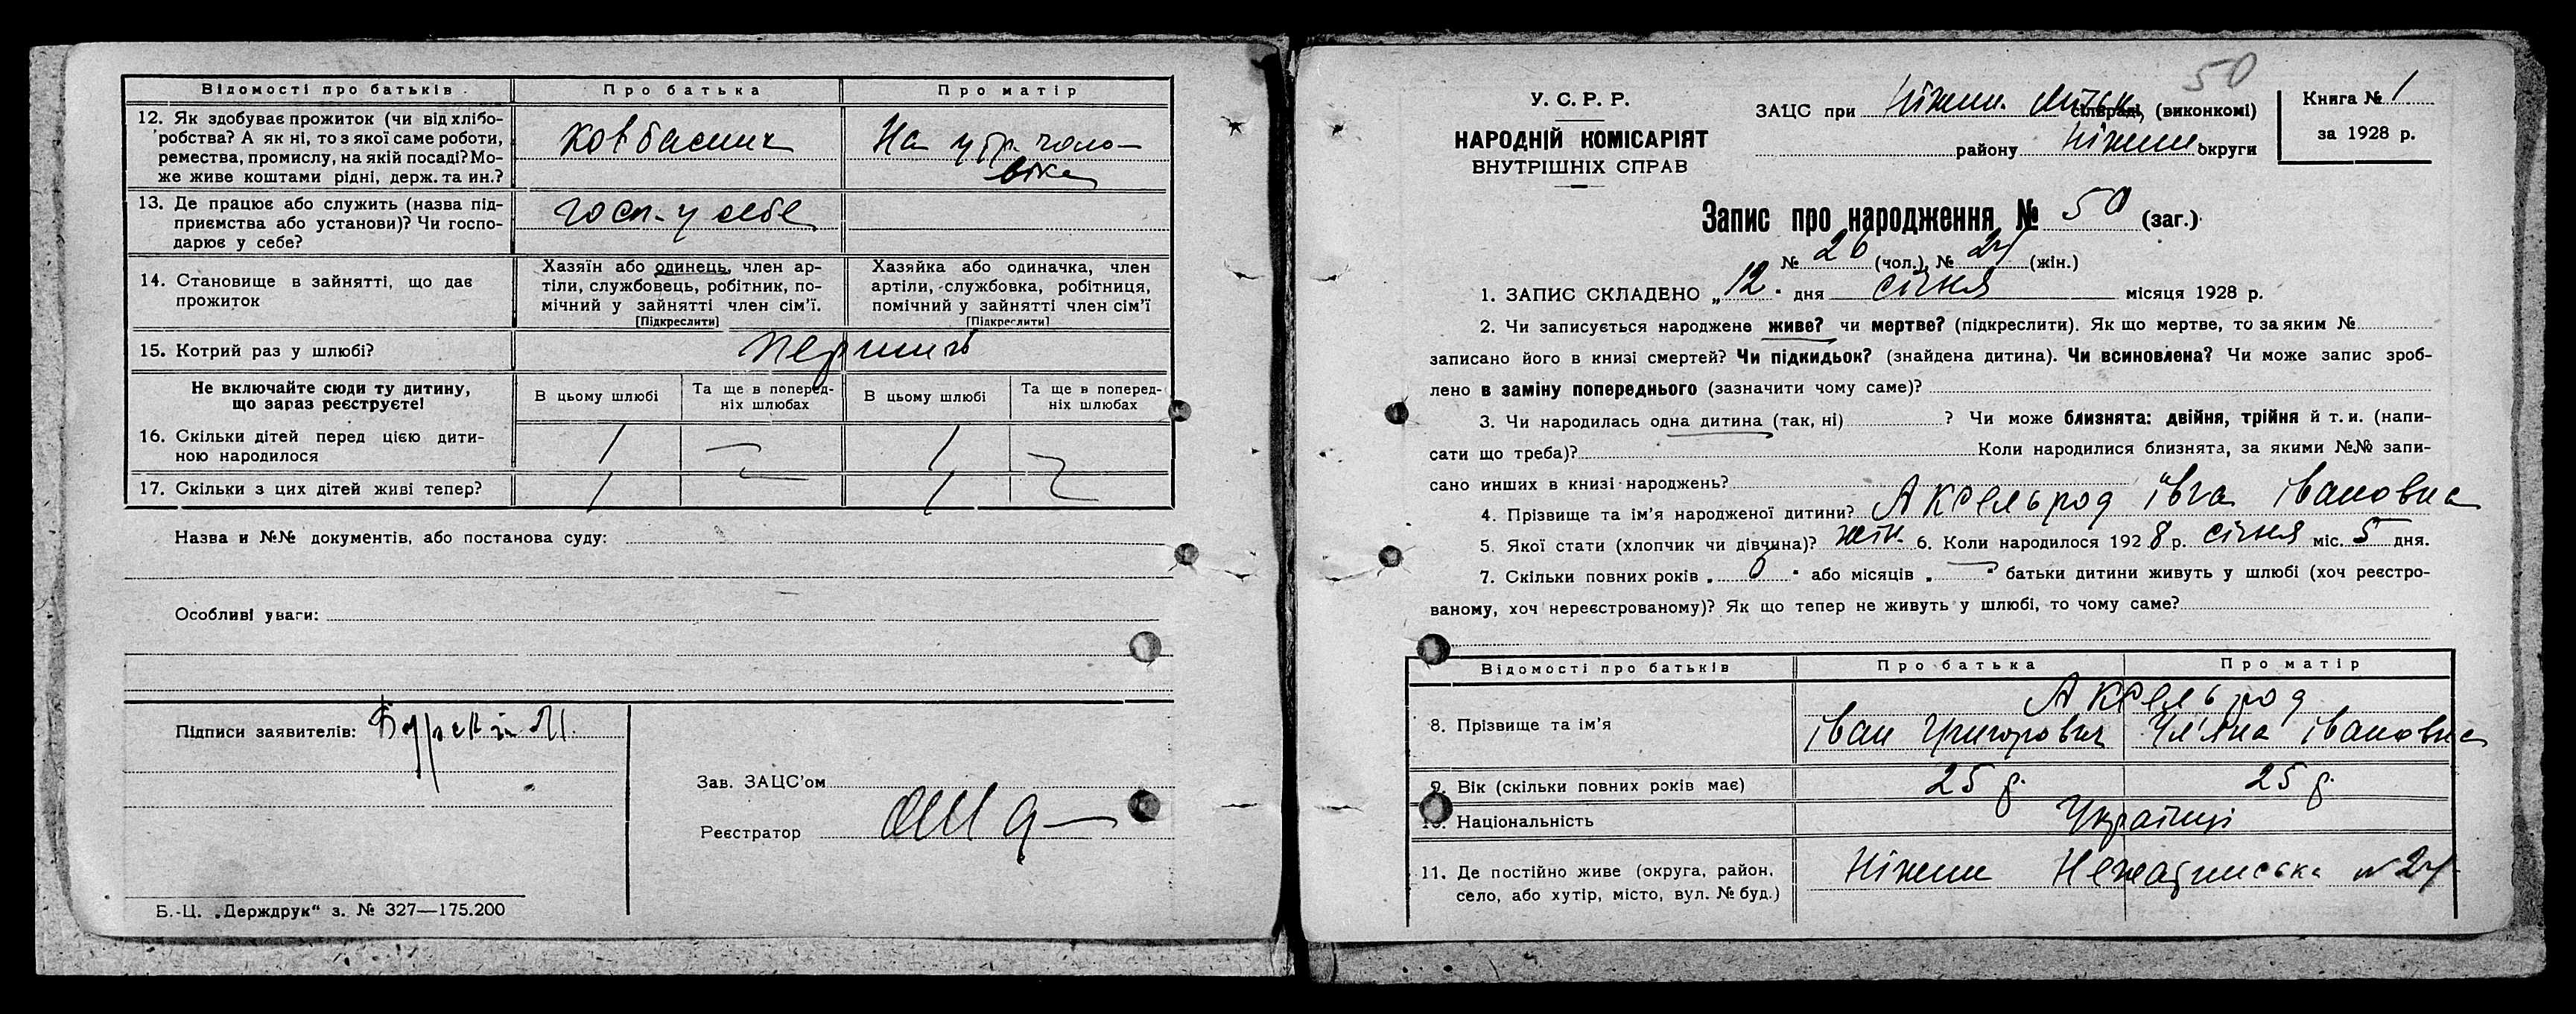 Відомості про батьків. Про батька Про матір
12. Як здобуває прожиток (чи від хлібо-
робства? А як ні, то з якої саме роботи,
ремества, промислу, на якій посаді? Мо-
же живе коштами рідні, держ. та ин.?
Ковбасник
На утр. чоло-
віка
13. Де працює або служить (назва під-
приємства або установи)? Чи госпо-
дарює у себе?
госп. у себе
14. Становище в зайнятті, що дає
прожиток
Хазяїн або одинець, член ар-
тіли, службовець, робітник, по-
мічний у зайнятті член сім'ї.
[Підкреслити]
Хазяйка або одиначка, член
артіли, службовка, робітниця,
помічний у зайнятті член сім'ї
[Підкреслити]
15. Котрий раз у шлюбі? перший
Не включайте сюди ту дитину,
що зараз реєструєте!
В цьому шлюбі
Та ще в поперед-
ніх шлюбах
В цьому шлюбі
Та ще в поперед-
ніх шлюбах
16. Скільки дітей перед цією дити-
ною народилося
1 — 1
17. Скільки з цих дітей живі тепер? 1 — 1
Назва и №№ документів, або постанова суду:
Особливі уваги:
Підписи заявителів:
Зав. ЗАЦС'ом
Реєстратор
Б.-Ц. „Держдрук“ з. № 327—175.200
50
У. С. Р. Р.
НАРОДНІЙ КОМІСАРІЯТ
ВНУТРІШНІХ СПРАВ
ЗАЦС при Ніжин. сільраді, (виконкомі)
району Ніжин округи
Книга № 1
за 1928 р.
Запис про народження № 50 (заг.)
№ 26 (чол.), № 24 (жін.)
1. ЗАПИС СКЛАДЕНО „12. дня січня місяця 1928 р.
2. Чи записується народжене живе? чи мертве? (підкреслити). Як що мертве, то за яким №
записано його в книзі смертей? Чи підкидьок? (знайдена дитина). Чи всиновлена? Чи може запис зроб-
лено в заміну попереднього (зазначити чому саме)?
3. Чи народилась одна дитина (так, ні) ? Чи може близнята: двійня, трійня й т. и. (напи-
сати що треба)? Коли народилися близнята, за якими №№ запи-
сано инших в книзі народжень?
4. Прізвище та ім'я народженої дитини? Аксельрод Івга Івановна
5. Якої стати (хлопчик чи дівчина)? жін. 6. Коли народилося 1928 р. січня міс. 5 дня.
7. Скільки повних років „ “ або місяців „ — “ батьки дитини живуть у шлюбі (хоч реєстро-
ваному, хоч нереєстрованому)? Як що тепер не живуть у шлюбі, то чому саме?
Відомості про батьків Про батька Про матір
8. Прізвище та ім'я
Аксельрод
Іван Григорович Ул'яна Івановна
9. Вік (скільки повних років має) 25 р. 25 р.
10. Національність Українці
11. Де постійно живе (округа, район,
село, або хутір, місто, вул. № буд.)
Ніжин № 24